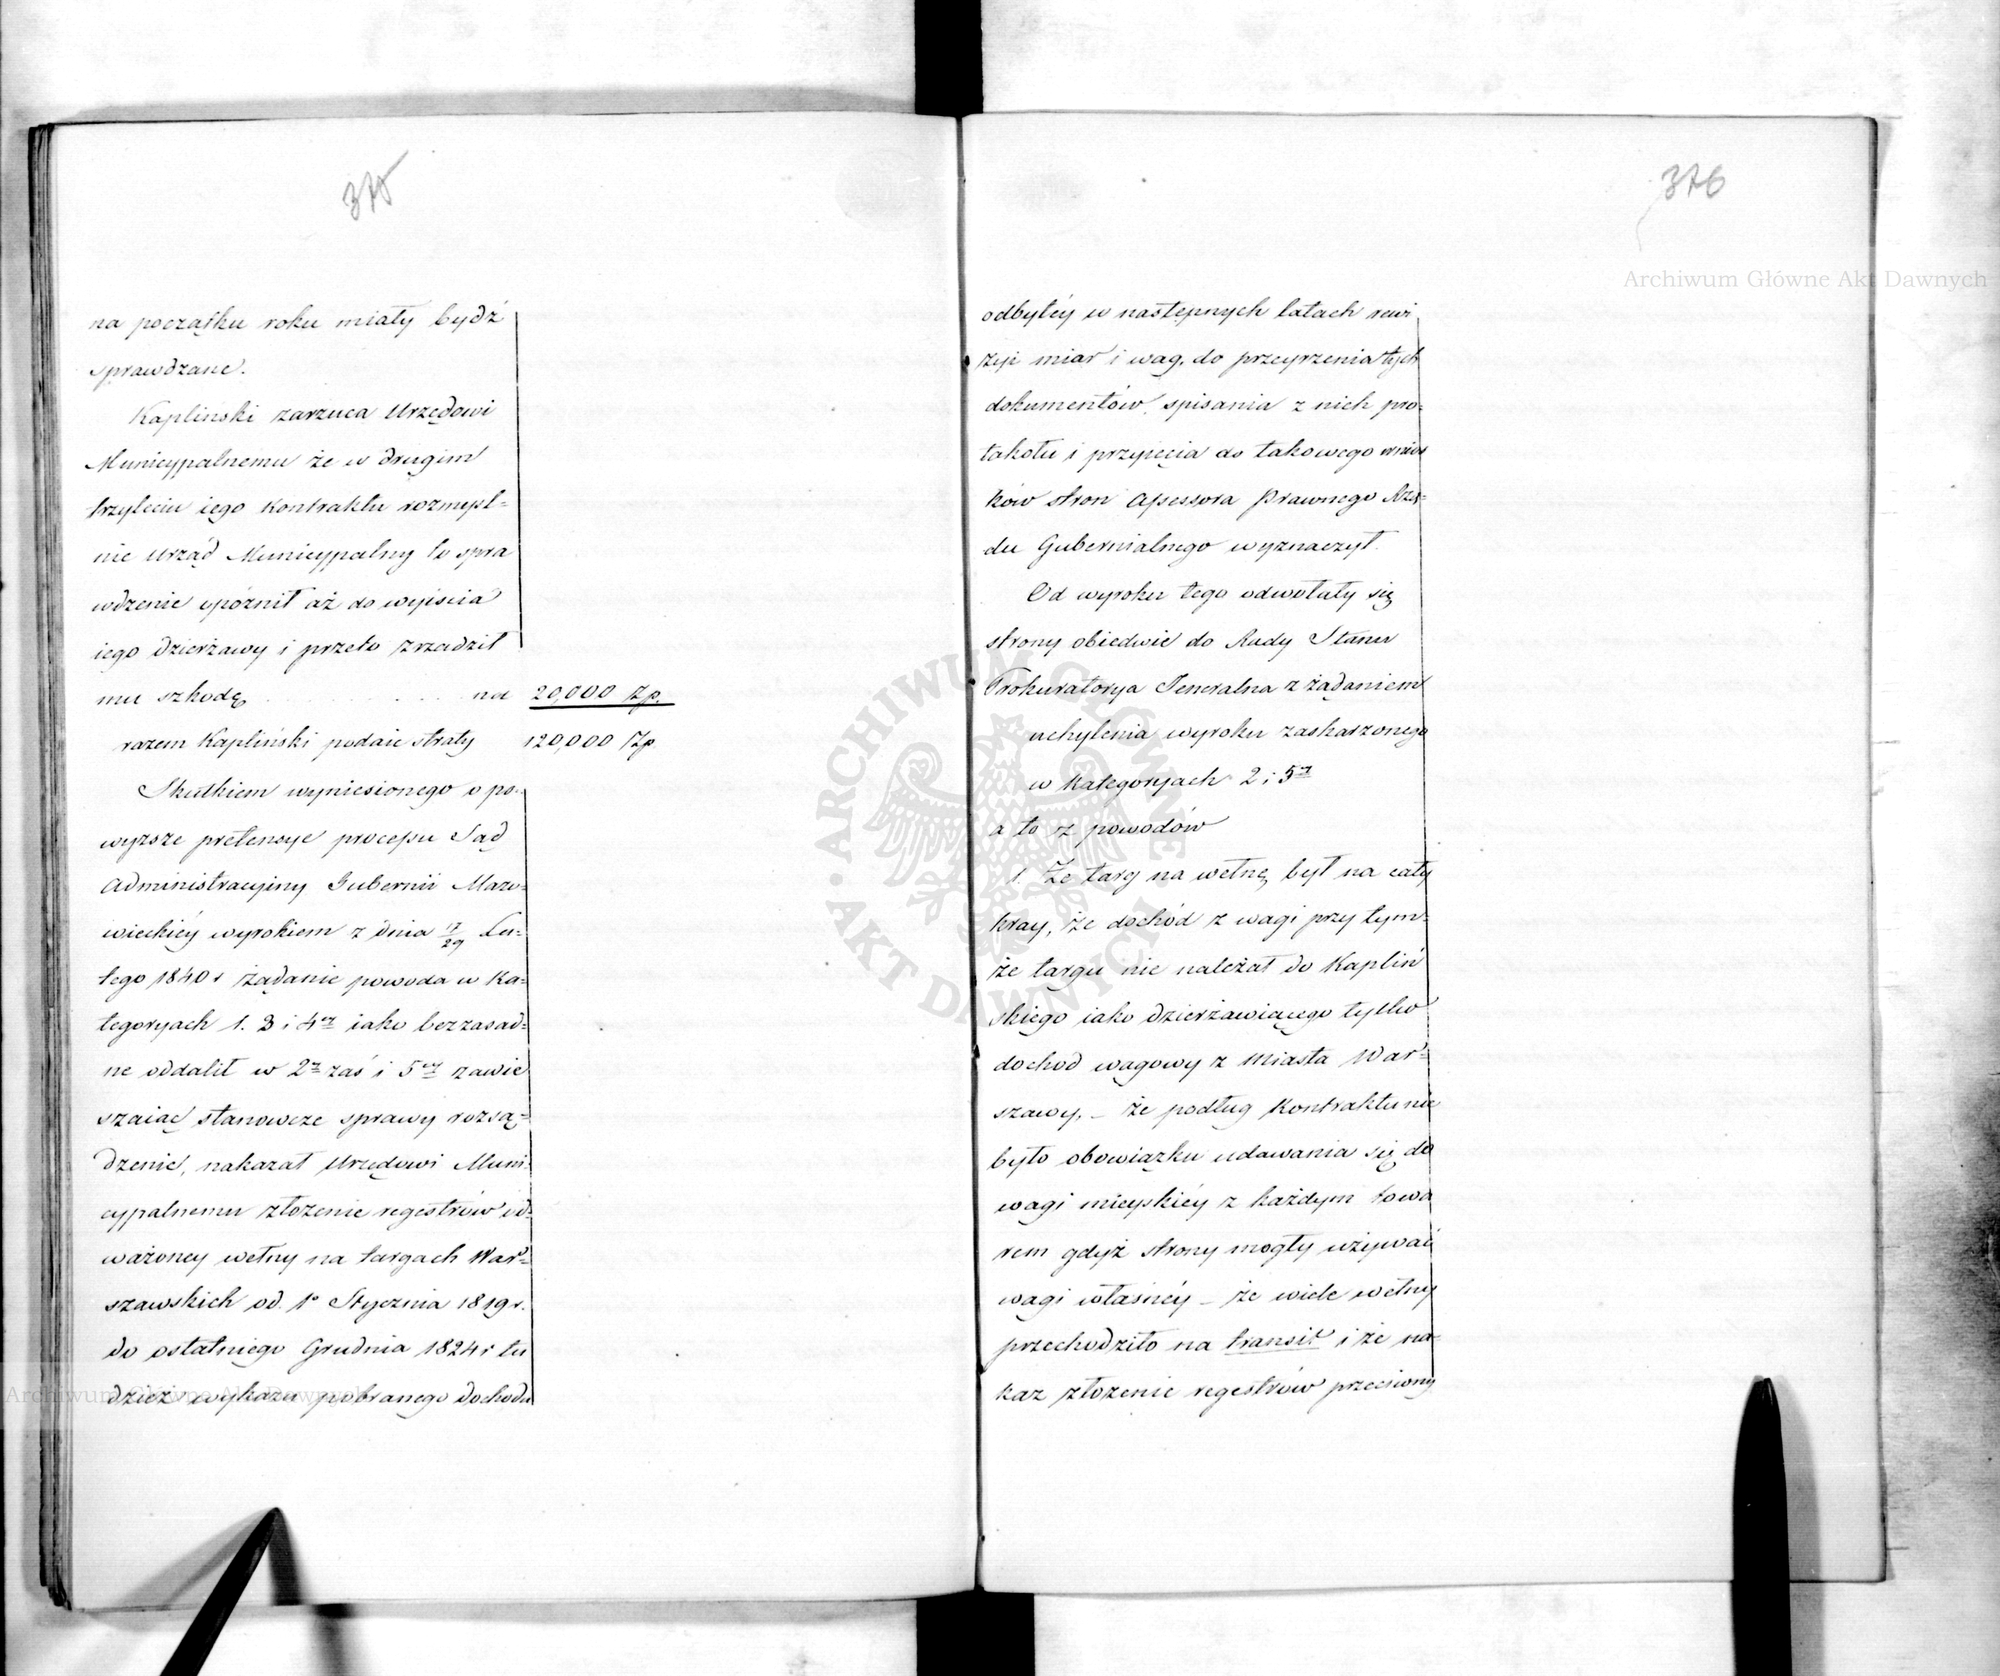 375
na początku roku miały bydź
sprawdzane.
Kapliński zarzuca Urzędowi
Municypalnemu że w drugim
trzyleciu iego Kontraktu rozmyśl-
nie Urząd Municypalny to spra
wdzenie opóźnił aż do wyiścia
iego dzierżawy i przeto zrządził
mu szkodę . . . . . . . . na 20,000 Zp.
razem Kapliński podaie straty 120,000 Zp
Skutkiem wyniesionego o po-
wyższe pretensye processu Sąd
Administracyiny Gubernii Mazo-
wieckiéy wyrokiem z dnia 17/29 Lu-
tego 1840 r żądanie powoda w Ka-
tegoryach 1. 3 i 4ej iako bezzasad-
ne oddalił w 2ej zaś i 5ej zawie
szaiąc stanowcze sprawy rozsą-
dzenie, nakazał Urzędowi Muni-
cypalnemu złożenie regestrów od-
ważoney wełny na targach War-
szawskich od 1o Stycznia 1819 r.
do ostatniego Grudnia 1824 r tu
dzież wykazu pobranego dochodu
376
Archiwum Główne Akt Dawnych
odbytéy w następnych latach rewi
zyi miar i wag, do przeyrzenia tych
dokumentów, spisania z nich pro-
tokołu i przyięcia do takowego wnios
ków stron Assessora Prawnego Rzą-
du Gubernialnego wyznaczył.
Od wyroku tego odwołały się
strony obiedwie do Rady Stanu
Prokuratorya Jeneralna z żądaniem
uchylenia wyroku zaskarżonego
w Kategoryach 2 i 5ej
a to z powodów
1. Że targ na wełnę był na cały
kray, że dochód z wagi przy tym-
że targu nie należał do Kapliń
skiego iako dzierżawiącego tylko
dochod wagowy z Miasta War-
szawy, – że podług Kontraktu nie
było obowiązku udawania się do
wagi mieyskiéy z każdym towa
rem gdyż strony mogły używać
wagi własnéy – że wiele wełny
przechodziło na transit i że na-
kaz złożenie regestrów przeciwny
ARCHIWUM GŁÓWNE
AKT DAWNYCH
Archiwum Główne Akt Dawnych